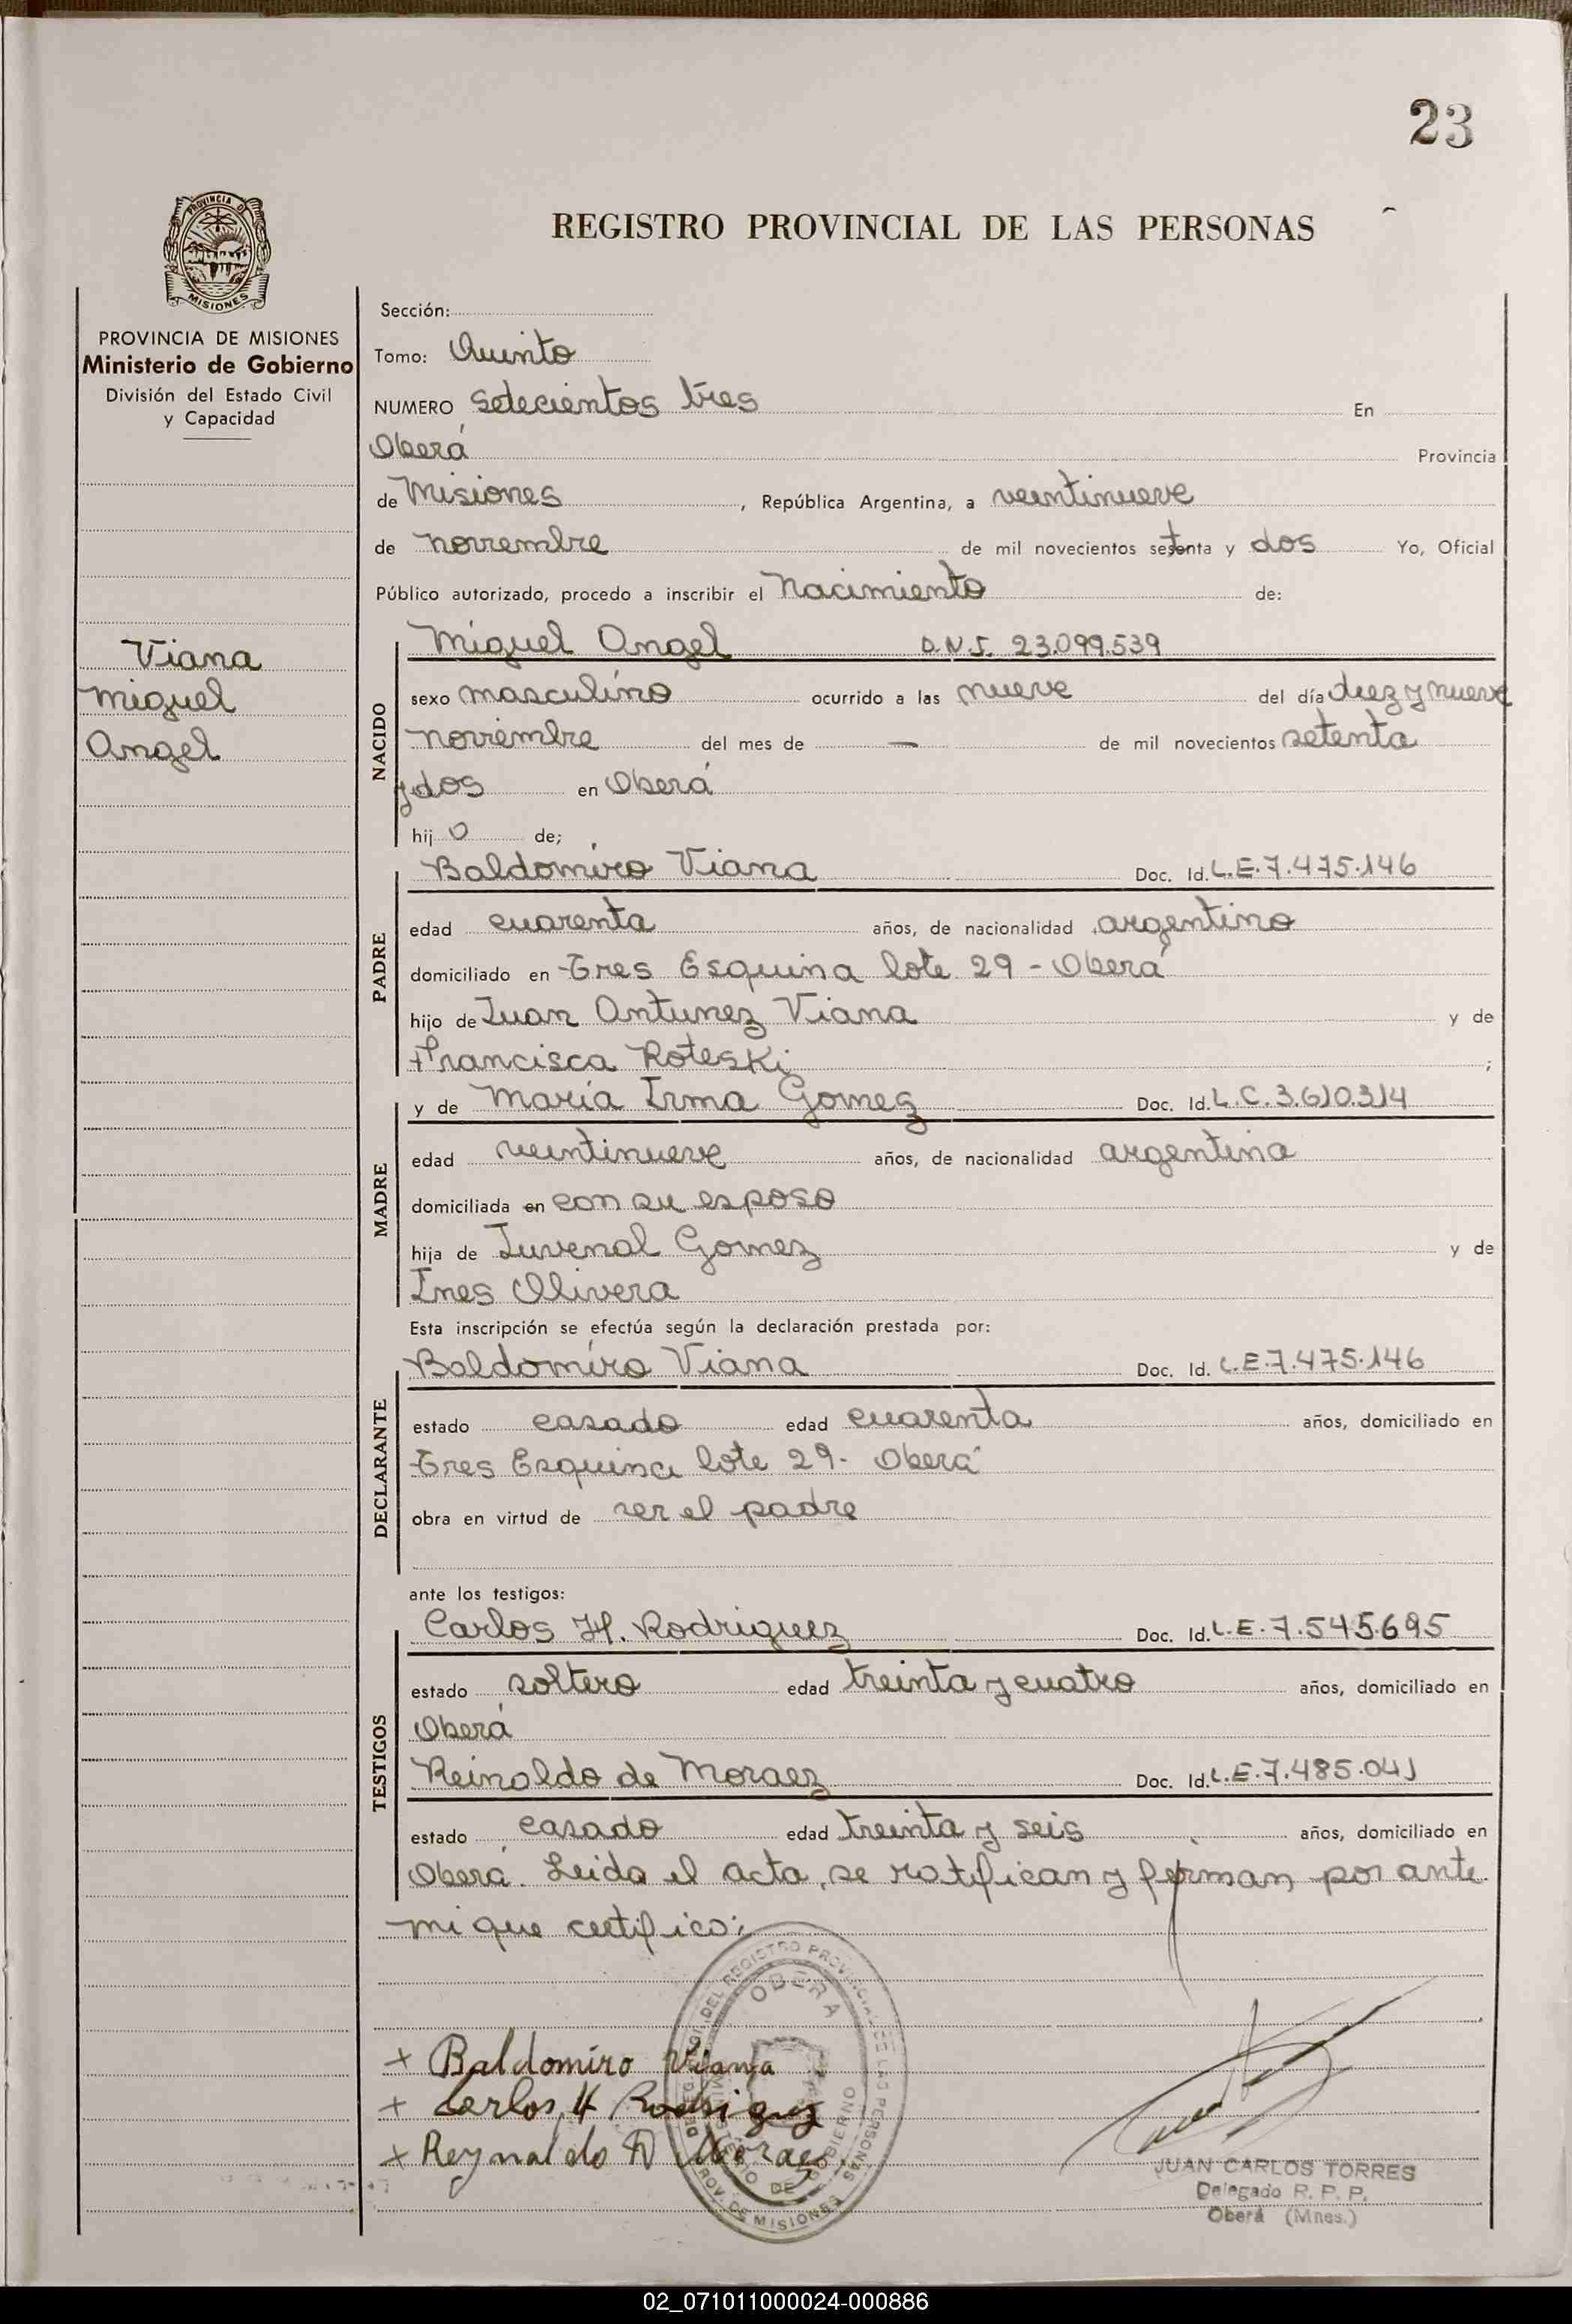 23
REGISTRO PROVINCIAL DE LAS PERSONAS
PROVINCIA DE MISIONES
MISIONES
PROVINCIA DE MISIONES
Ministerio de Gobierno
División del Estado Civil
y Capacidad
Viana
Miguel
Angel
Sección:
Tomo: Quinto
NUMERO Setecientos tres En
Oberá Provincia
de Misiones, República Argentina, a veintinueve
de noviembre de mil novecientos setenta y dos Yo, Oficial
Público autorizado, procedo a inscribir el Nacimiento de:
NACIDO
Miguel Angel D.N.I. 23.099.539
sexo masculino ocurrido a las nueve del día diez y nueve
noviembre del mes de — de mil novecientos setenta
y dos en Oberá
hijo de;
PADRE
Baldomiro Viana Doc. Id. L.E. 7.475.146
edad cuarenta años, de nacionalidad argentino
domiciliado en Tres Esquina lote 29 - Oberá
hijo de Juan Antunez Viana y de
Francisca Roteski;
MADRE
y de María Irma Gomez Doc. Id. L.C. 3.610.314
edad veintinueve años, de nacionalidad argentina
domiciliada en con su esposo
hija de Juvenal Gomez y de
Ines Olivera
Esta inscripción se efectúa según la declaración prestada por:
DECLARANTE
Baldomiro Viana Doc. Id. L.E. 7.475.146
estado casado edad cuarenta años, domiciliado en
Tres Esquina lote 29 - Oberá
obra en virtud de ser el padre
ante los testigos:
TESTIGOS
Carlos H. Rodriguez Doc. Id. L.E. 7.545.695
estado soltero edad treinta y cuatro años, domiciliado en
Oberá
Reinaldo de Moraez Doc. Id. L.E. 7.485.041
estado casado edad treinta y seis años, domiciliado en
Oberá. Leida el acta, se ratifican y firman por ante
mi que certifico:
OBERA
+ Baldomiro Viana
+ Carlos H Rodriguez
+ Reynaldo D Moraez
JUAN CARLOS TORRES
Delegado R. P. P.
Oberá (Mnes.)
02_071011000024-000886